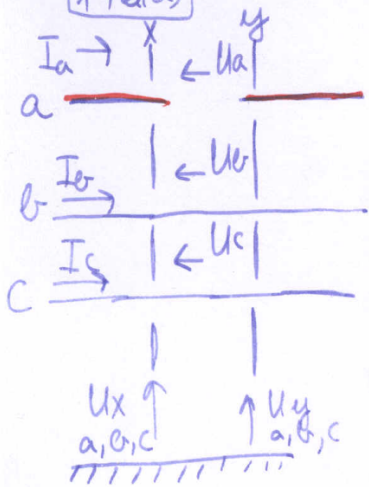 x y
Ia Ua
a
Ib Ub
b
Ic Uc
c
Ux Uy
a, b, c a, b, c